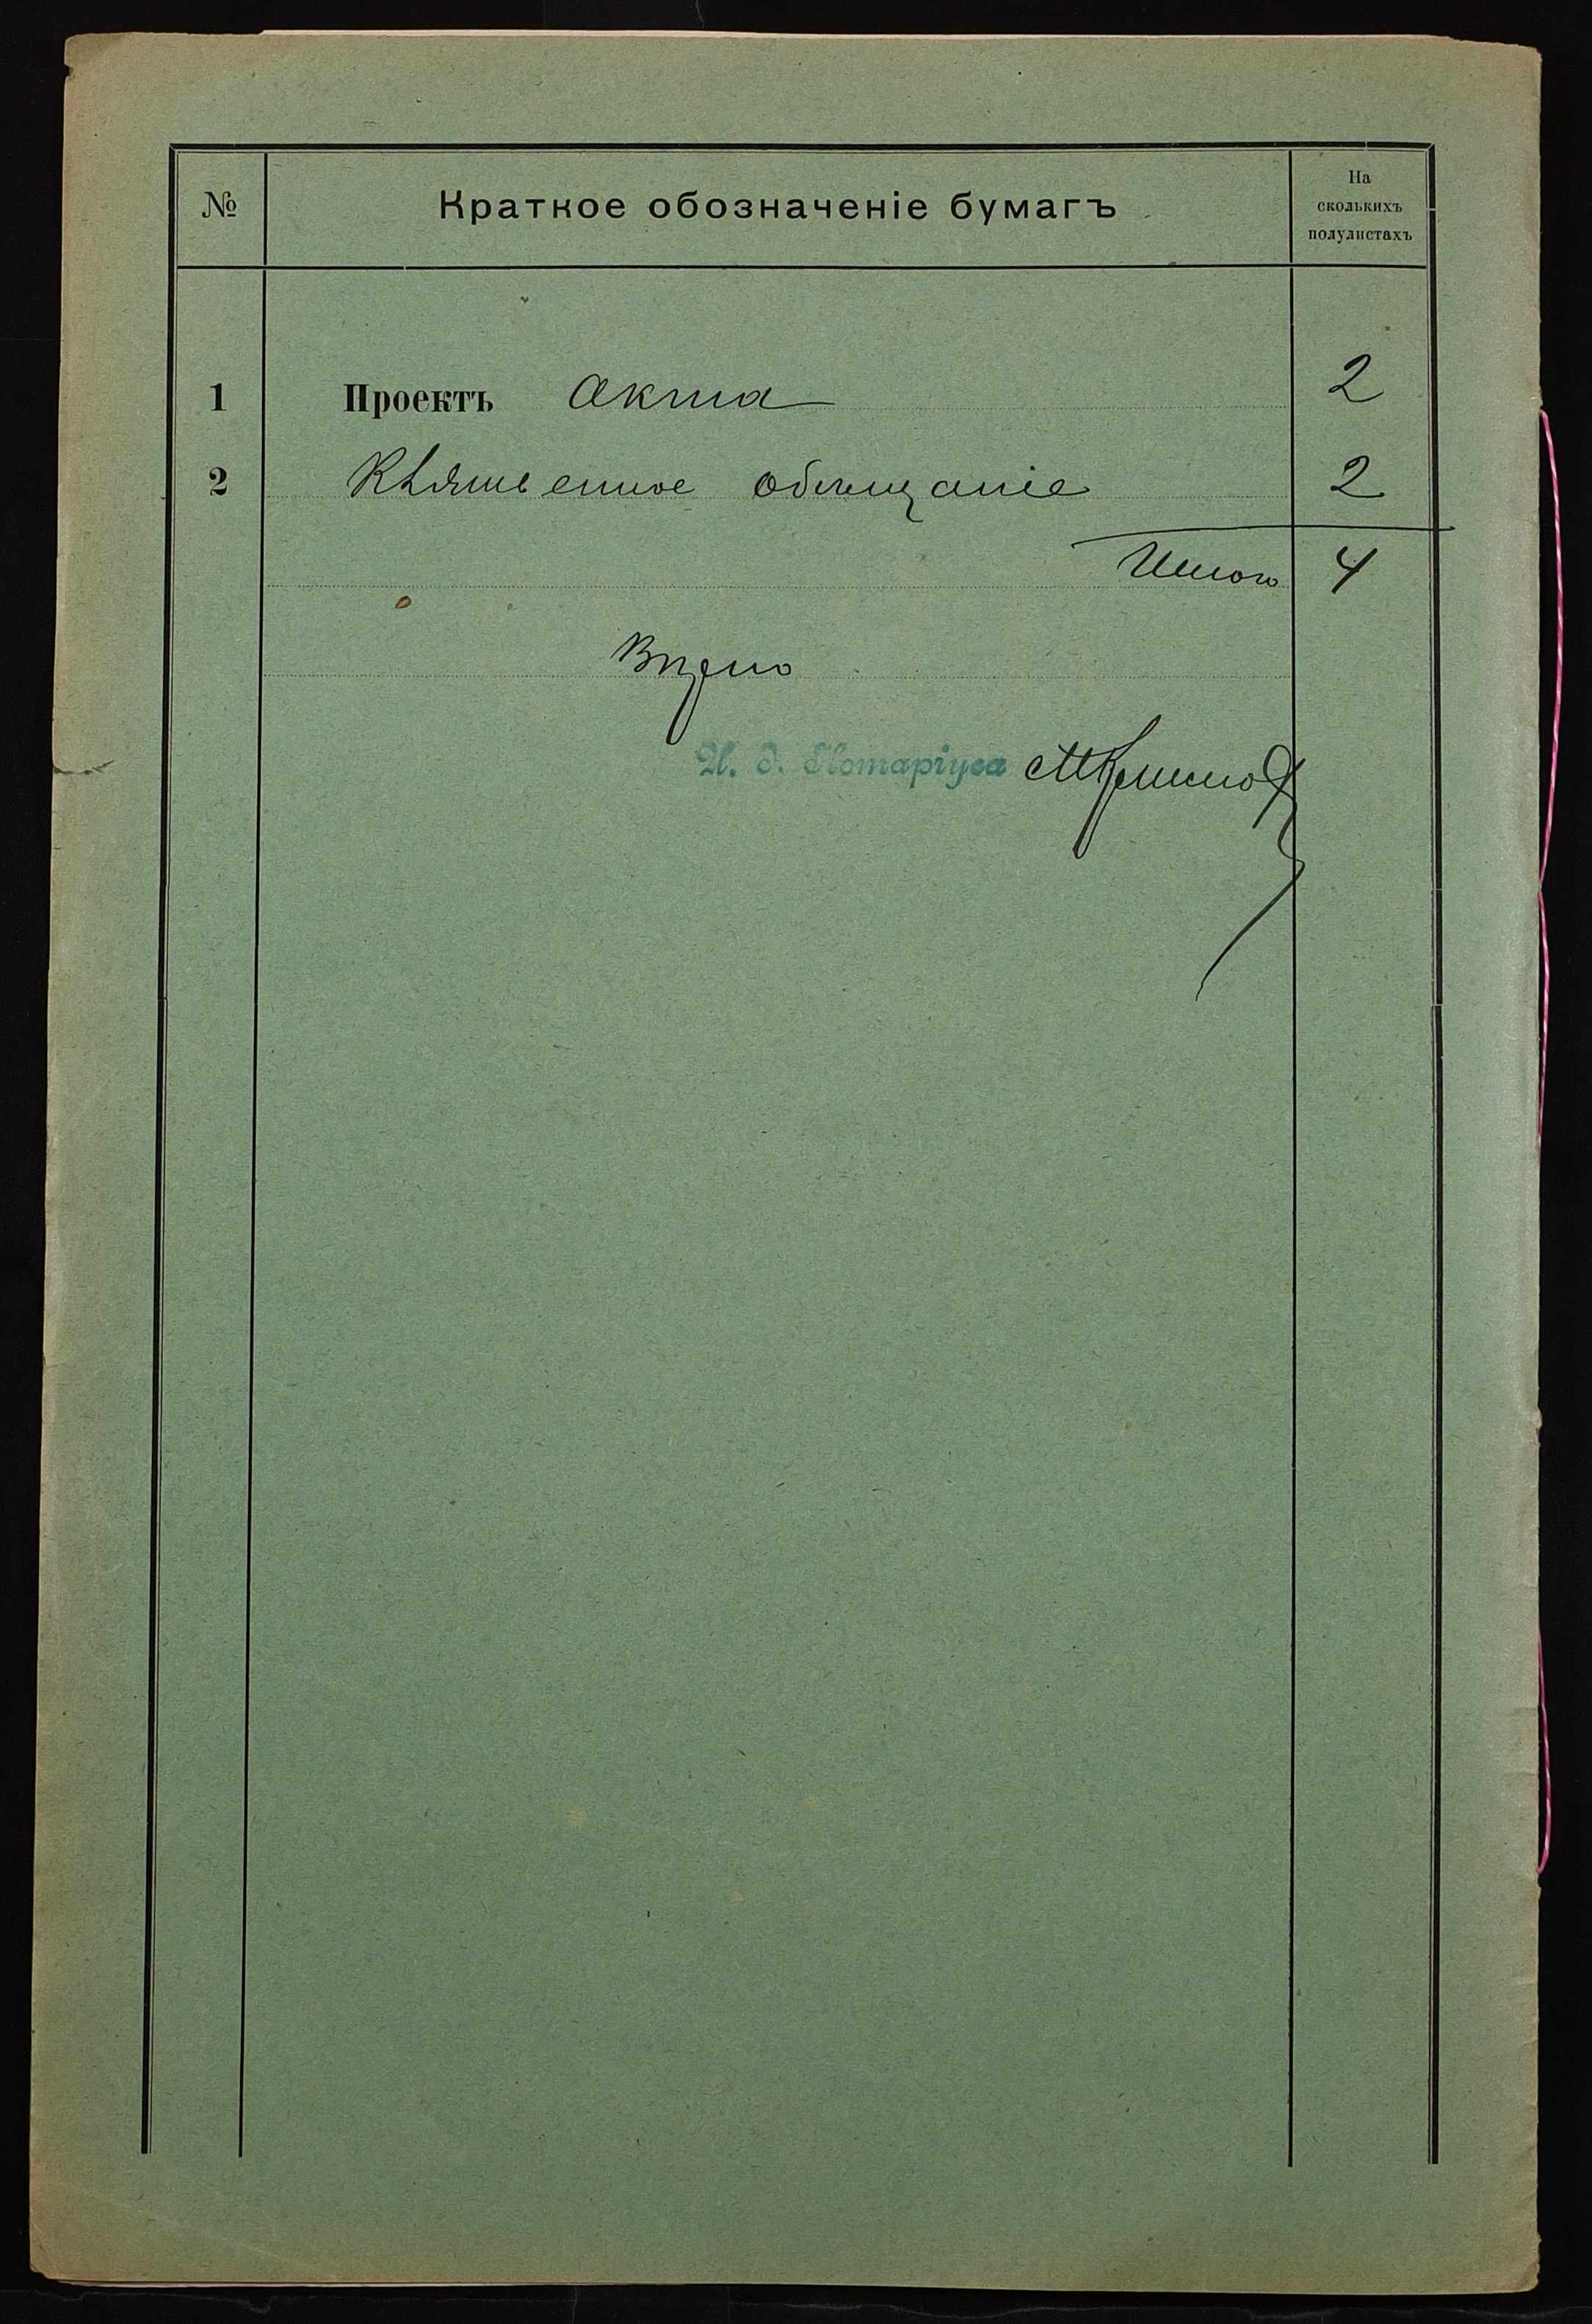 № Краткое обозначеніе бумагъ На сколькихъ полулистахъ
1 Проектъ акта 2
2 Клятвенное обѣщаніе 2
Итого 4
Вѣрно
И. д. Нотаріуса